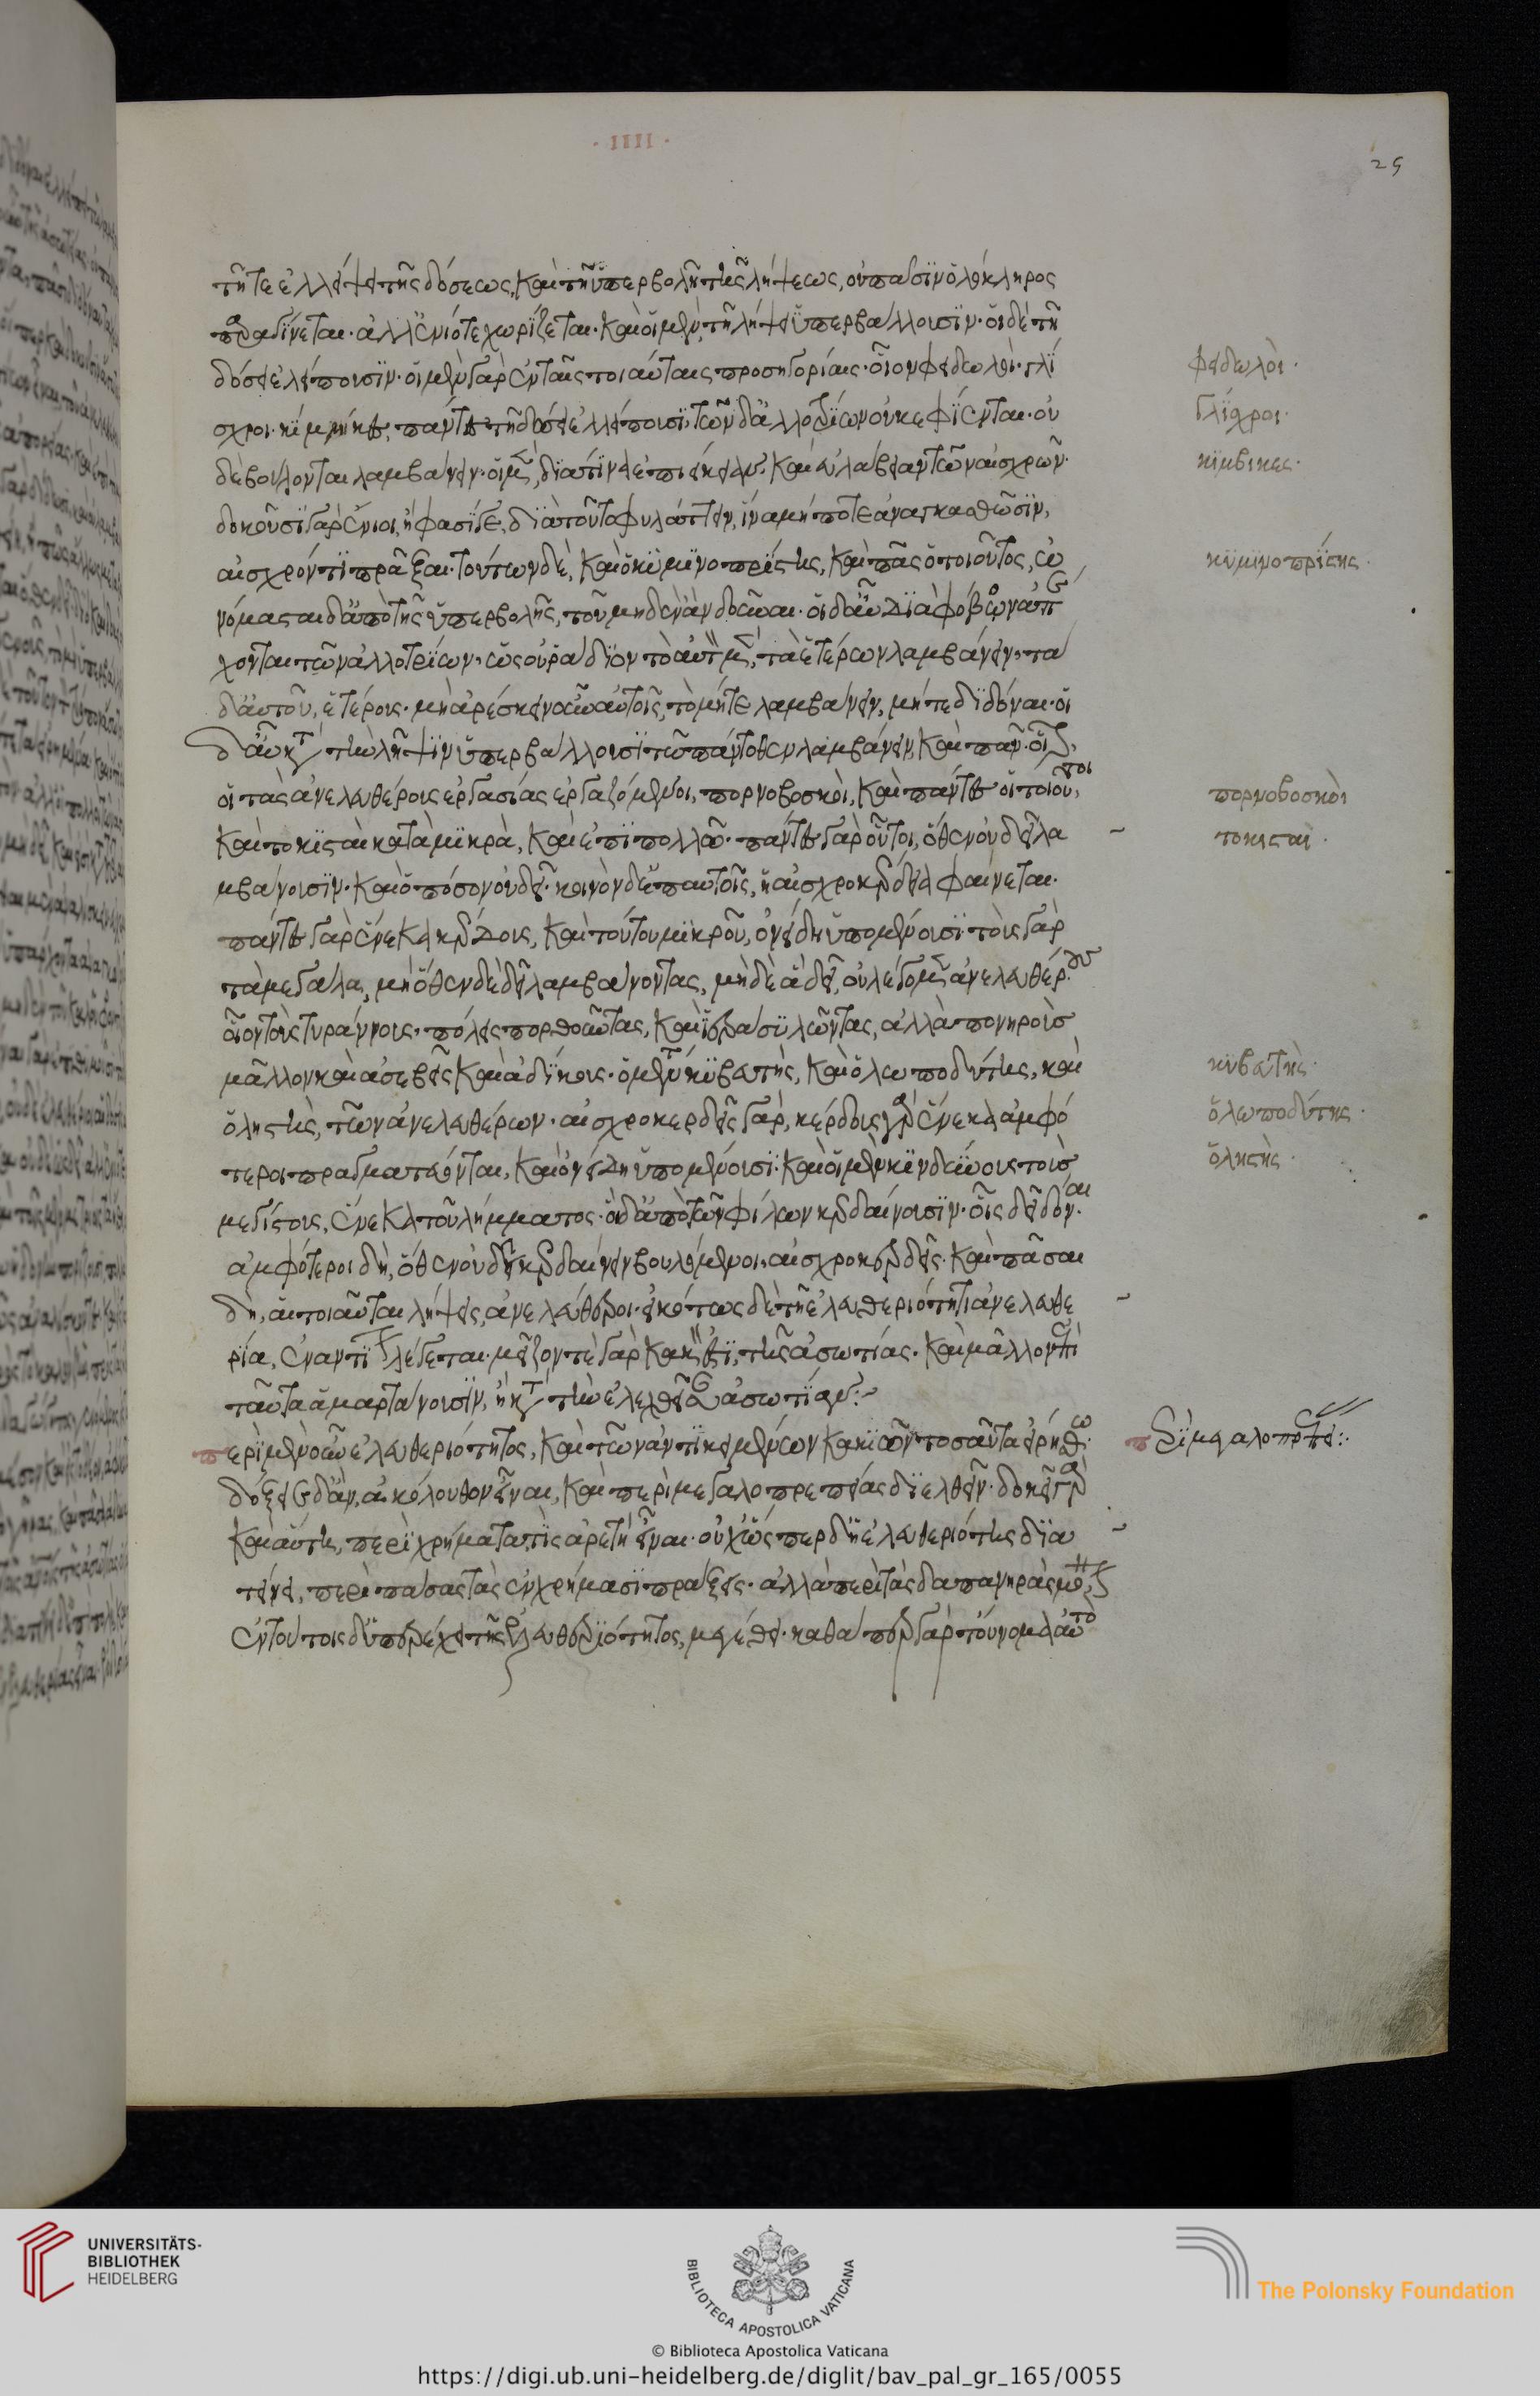 · IIII ·
25
τῆ τε ἐλλείψει τῆς δόσεως, καὶ τῆ ὑπερβολῆ τῆς λήψεως, οὐ πᾶσιν ὁλόκληρος
παραγίνεται· ἀλλ' ἐνίοτε χωρίζεται· καὶ οἱ μὲν, τῆ λήψει ὑπερβάλλουσιν· οἱ δὲ τῆ
δόσει ἐλείπουσιν· οἱ μὲν γὰρ ἐν ταῖς τοιαύταις προσηγορίαις· οἷον φειδωλοὶ· γλί
σχροι· κίμβικες, πάντες τῆ δόσει ἐλλείπουσι, τῶν δ' ἀλλοτρίων οὐκ ἐφίενται· οὐ
δὲ βούλονται λαμβάνειν· οἱ μὲν, διά τινα ἐπιείκειαν· καὶ εὐλάβειαν τῶν αἰσχρῶν·
δοκοῦσι γὰρ ἔνιοι, ἢ φασί γε, διὰ τοῦτο φυλάττειν, ἵνα μή ποτε ἀναγκασθῶσιν,
αἰσχρόν τι πρᾶξαι· τούτων δὲ, καὶ ὁ κυμινοπρίστης, καὶ πᾶς ὁ τοιοῦτος, ὠ
νόμασται δ' ἀπὸ τῆς ὑπερβολῆς, τοῦ μηδενὶ ἂν δοῦναι· οἱ δ' αὖ διὰ φόβον ἀπέ
χονται τῶν ἀλλοτρίων, ὡς οὐ ῥάδιον τὸ αὐτὸν μὲν, τὰ ἑτέρων λαμβάνειν, τὰ
δ' αὐτοῦ, ἑτέρους· μὴ ἀρέσκειν οὖν αὐτοῖς, τὸ μήτε λαμβάνειν, μήτε διδόναι· οἱ
δ' αὖ κατὰ τὴν λῆψιν ὑπερβάλλουσι τῶ πάντοθεν λαμβάνειν, καὶ πᾶν· οἷον,
οἱ τὰς ἀνελευθέρους ἐργασίας ἐργαζόμενοι, πορνοβοσκοὶ, καὶ πάντες οἱ τοιοῦτοι,
καὶ τοκισταὶ κατὰ μικρὰ, καὶ ἐπὶ πολλῶ· πάντες γὰρ οὗτοι, ὅθεν οὐ δεῖ λα
μβάνουσιν· καὶ ὁπόσον οὐ δεῖ· κοινὸν δ' ἐπ' αὐτοῖς, ἡ αἰσχροκέρδεια φαίνεται·
πάντες γὰρ ἕνεκα κέρδους, καὶ τούτου μικροῦ, ὀνείδη ὑπομένουσι τοὺς γὰρ
τὰ μεγάλα, μὴ ὅθεν δὲ δεῖ λαμβάνοντας, μηδὲ ἃ δεῖ, οὐ λέγομεν ἀνελευθέρους
οἷον τοὺς τυράννους, πόλεις πορθοῦντας, καὶ ἱερὰ συλῶντας, ἀλλὰ πονηροὺς
μᾶλλον καὶ ἀσεβεῖς καὶ ἀδίκους· ὁ μέντοι κυβευτὴς, καὶ ὁ λωποδύτης, καὶ
ὁ ληστὴς, τῶν ἀνελευθέρων· αἰσχροκερδεῖς γὰρ, κέρδους γὰρ ἕνεκα ἀμφό
τεροι πραγματεύονται, καὶ ὀνείδη ὑπομένουσι· καὶ οἱ μὲν κινδύνους τοὺς
μεγίστους, ἕνεκα τοῦ λήμματος· οἱ δ' ἀπὸ τῶν φίλων κερδαίνουσιν· οἷς δεῖ διδόναι·
ἀμφότεροι δὴ, ὅθεν οὐ δεῖ κερδαίνειν βουλόμενοι, αἰσχροκερδεῖς· καὶ πᾶσαι
δὴ, αἱ τοιαῦται λήψεις, ἀνελεύθεροι· εἰκότως δὲ τῆ ἐλευθεριότητι ἀνελευθε
ρία, ἐναντίον λέγεται· μεῖζόν τε γὰρ κακόν ἐστι, τῆς ἀσωτίας· καὶ μᾶλλον ἐπὶ
ταῦτα ἁμαρτάνουσιν, ἢ κατὰ τὴν λεχθεῖσαν ἀσωτίαν:~
περὶ μὲν οὖν ἐλευθεριότητος, καὶ τῶν ἀντικειμένων κακιῶν τοσαῦτα εἰρήσθω·
δόξειε δ' ἂν, ἀκόλουθον εἶναι, καὶ περὶ μεγαλοπρεπείας διελθεῖν· δοκεῖ γὰρ
καὶ αὕτη, περὶ χρήματά τις ἀρετὴ εἶναι· οὐχ ὥσπερ δ' ἡ ἐλευθεριότης δια
τείνει, περὶ πάσας τὰς ἐν χρήμασι πράξεις· ἀλλὰ περὶ τὰς δαπανηρὰς μόνον,
ἐν τούτοις δ' ὑπερέχει τῆς ἐλευθεριότητος, μεγέθει· καθάπερ γὰρ τοὔνομα αὐτὸ
φειδωλοὶ·
γλίσχροι·
κίμβικες·
κυμινοπρίστης·
πορνοβοσκοὶ
τοκισταὶ·
κυβευτὴς·
ὁ λωποδύτης·
ὁ ληστὴς·
περὶ μεγαλοπρεπείας:
UNIVERSITÄTS-
BIBLIOTHEK
HEIDELBERG
BIBLIOTECA APOSTOLICA VATICANA
The Polonsky Foundation
© Biblioteca Apostolica Vaticana
https://digi.ub.uni-heidelberg.de/diglit/bav_pal_gr_165/0055